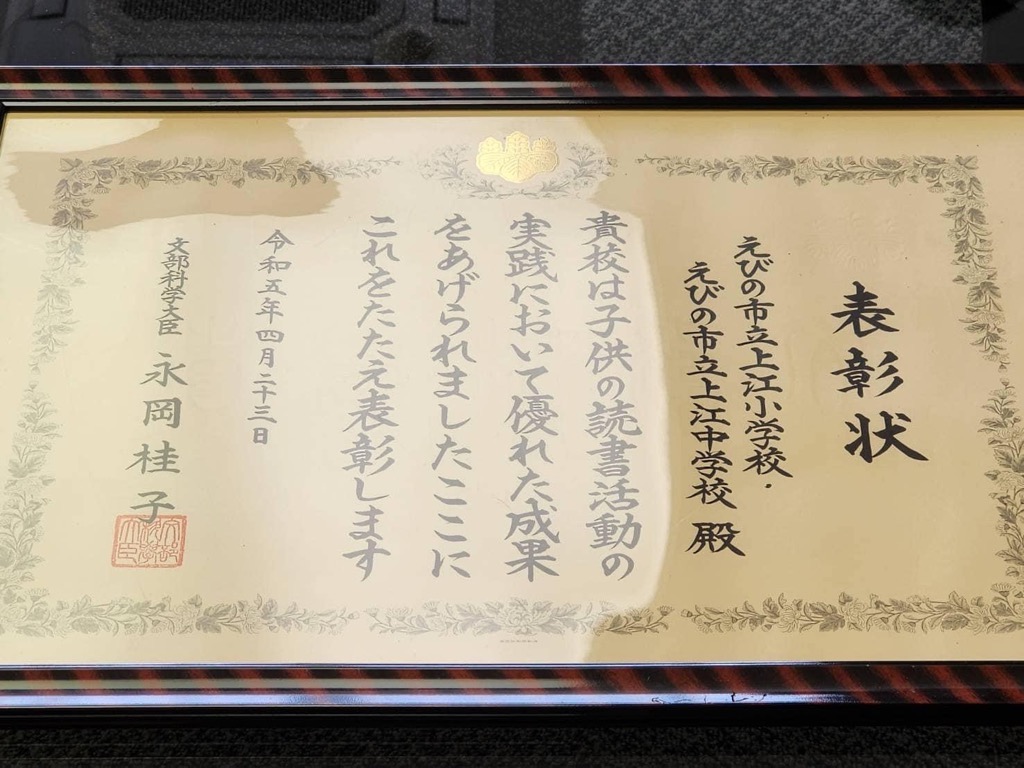 表彰状
えびの市立上江小学校・
えびの市立上江中学校 殿
貴校は子供の読書活動の
実践において優れた成果
をあげられましたここに
これをたたえ表彰します
令和五年四月二十三日
文部科学大臣 永岡桂子